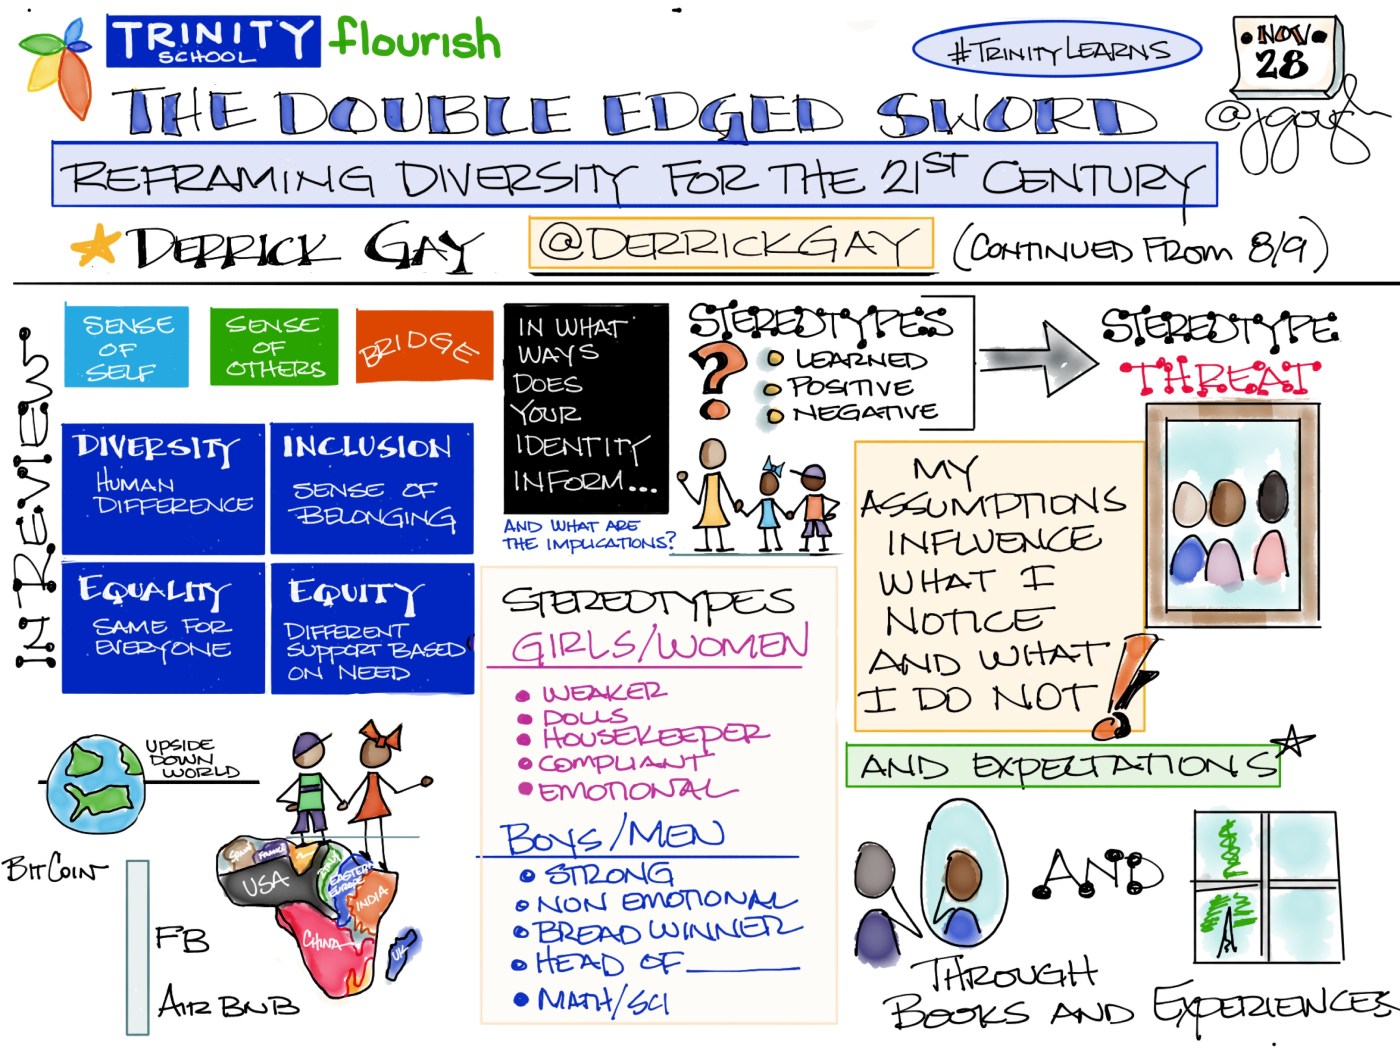 TRINITY
SCHOOL
flourish
#TRINITYLEARNS
NOV
28
@jgough
THE DOUBLE EDGED SWORD
REFRAMING DIVERSITY FOR THE 21ST CENTURY
DERRICK GAY
@DERRICKGAY
(CONTINUED FROM 8/9)
IN REVIEW
SENSE
OF
SELF
SENSE
OF
OTHERS
BRIDGE
DIVERSITY
HUMAN
DIFFERENCE
INCLUSION
SENSE OF
BELONGING
EQUALITY
SAME FOR
EVERYONE
EQUITY
DIFFERENT
SUPPORT BASED
ON NEED
IN WHAT
WAYS
DOES
YOUR
IDENTITY
INFORM...
AND WHAT ARE
THE IMPLICATIONS?
STEREOTYPES
?
LEARNED
POSITIVE
NEGATIVE
STEREOTYPE
THREAT
MY
ASSUMPTIONS
INFLUENCE
WHAT I
NOTICE
AND WHAT
I DO NOT!
AND EXPECTATIONS
STEREOTYPES
GIRLS/WOMEN
• WEAKER
• DOLLS
• HOUSEKEEPER
• COMPLIANT
• EMOTIONAL
BOYS/MEN
• STRONG
• NON EMOTIONAL
• BREAD WINNER
• HEAD OF ______
• MATH/SCI
UPSIDE
DOWN
WORLD
BITCOIN
FB
AIRBNB
SPAIN
FRANCE
USA
ITALY
EASTERN
EUROPE
INDIA
CHINA
UK
AND
THROUGH
BOOKS AND EXPERIENCES